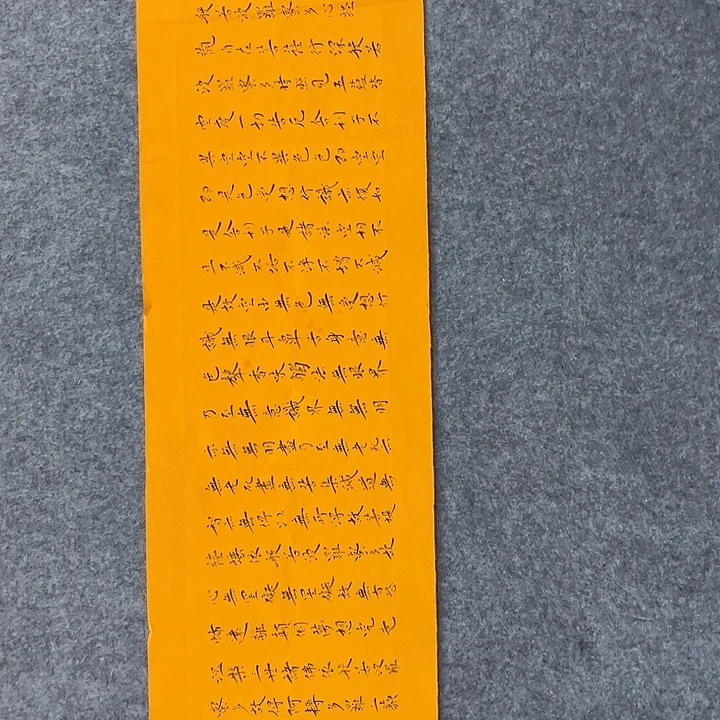 般若波羅蜜多心經
觀自在菩薩行深般若
波羅蜜多時照見五蘊皆
空度一切苦厄舍利子不
異空空不異色色即空空
即是色受想行識亦復如
是舍利子是諸法空相不
生不滅不垢不淨不增不減
是故空中無色無受想行
識無眼耳鼻舌身意無
色聲香味觸法無眼界
乃至無意識界無無明
亦無無明盡乃至無老死亦
無老死盡無苦集滅道無
智亦無得以無所得故菩提
薩埵依般若波羅蜜多故
心無罣礙無罣礙故無有恐
怖遠離顛倒夢想究竟
涅槃三世諸佛依般若波羅
蜜多故得阿耨多羅三藐